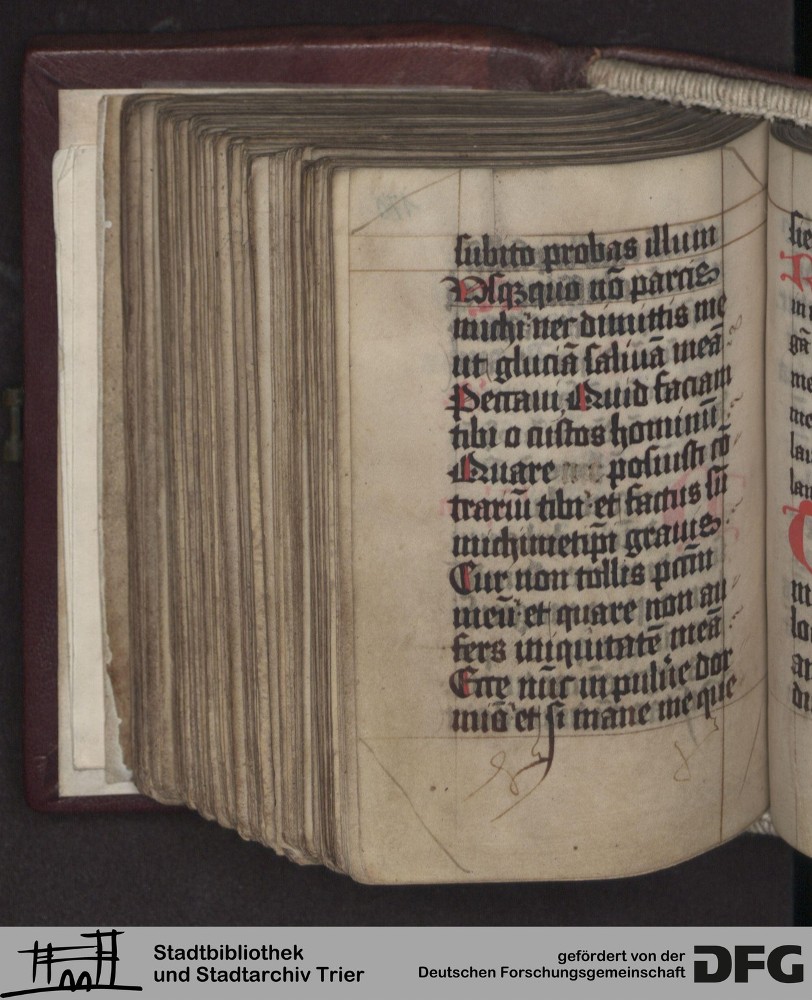 subito probas illum
Usqꝫquo nō parcis
michi nec dimittis me
ut gluciā saliuā meā
Peccaui Quid faciam
tibi o custos hominū
Quare posuisti cō
trariū tibi et factus sū
michimetip̄i grauis
Cur non tollis pctm̄
meū et quare non au
fers iniquitatē meā
Ecce nūc in puluere dor
miā et si mane me que
Stadtbibliothek
und Stadtarchiv Trier
gefördert von der
Deutschen Forschungsgemeinschaft
DFG